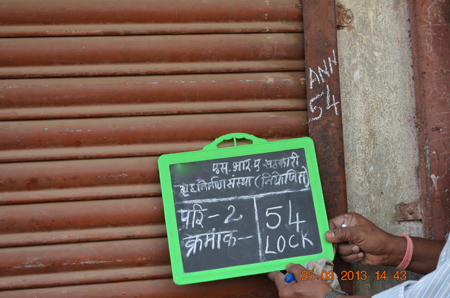 ANN
54
एस.आर.ए सहकारी
गृहनिर्माण संस्था (नियोजित)
परि-2
क्रमांक-
54
LOCK
25 03 2013 14 43